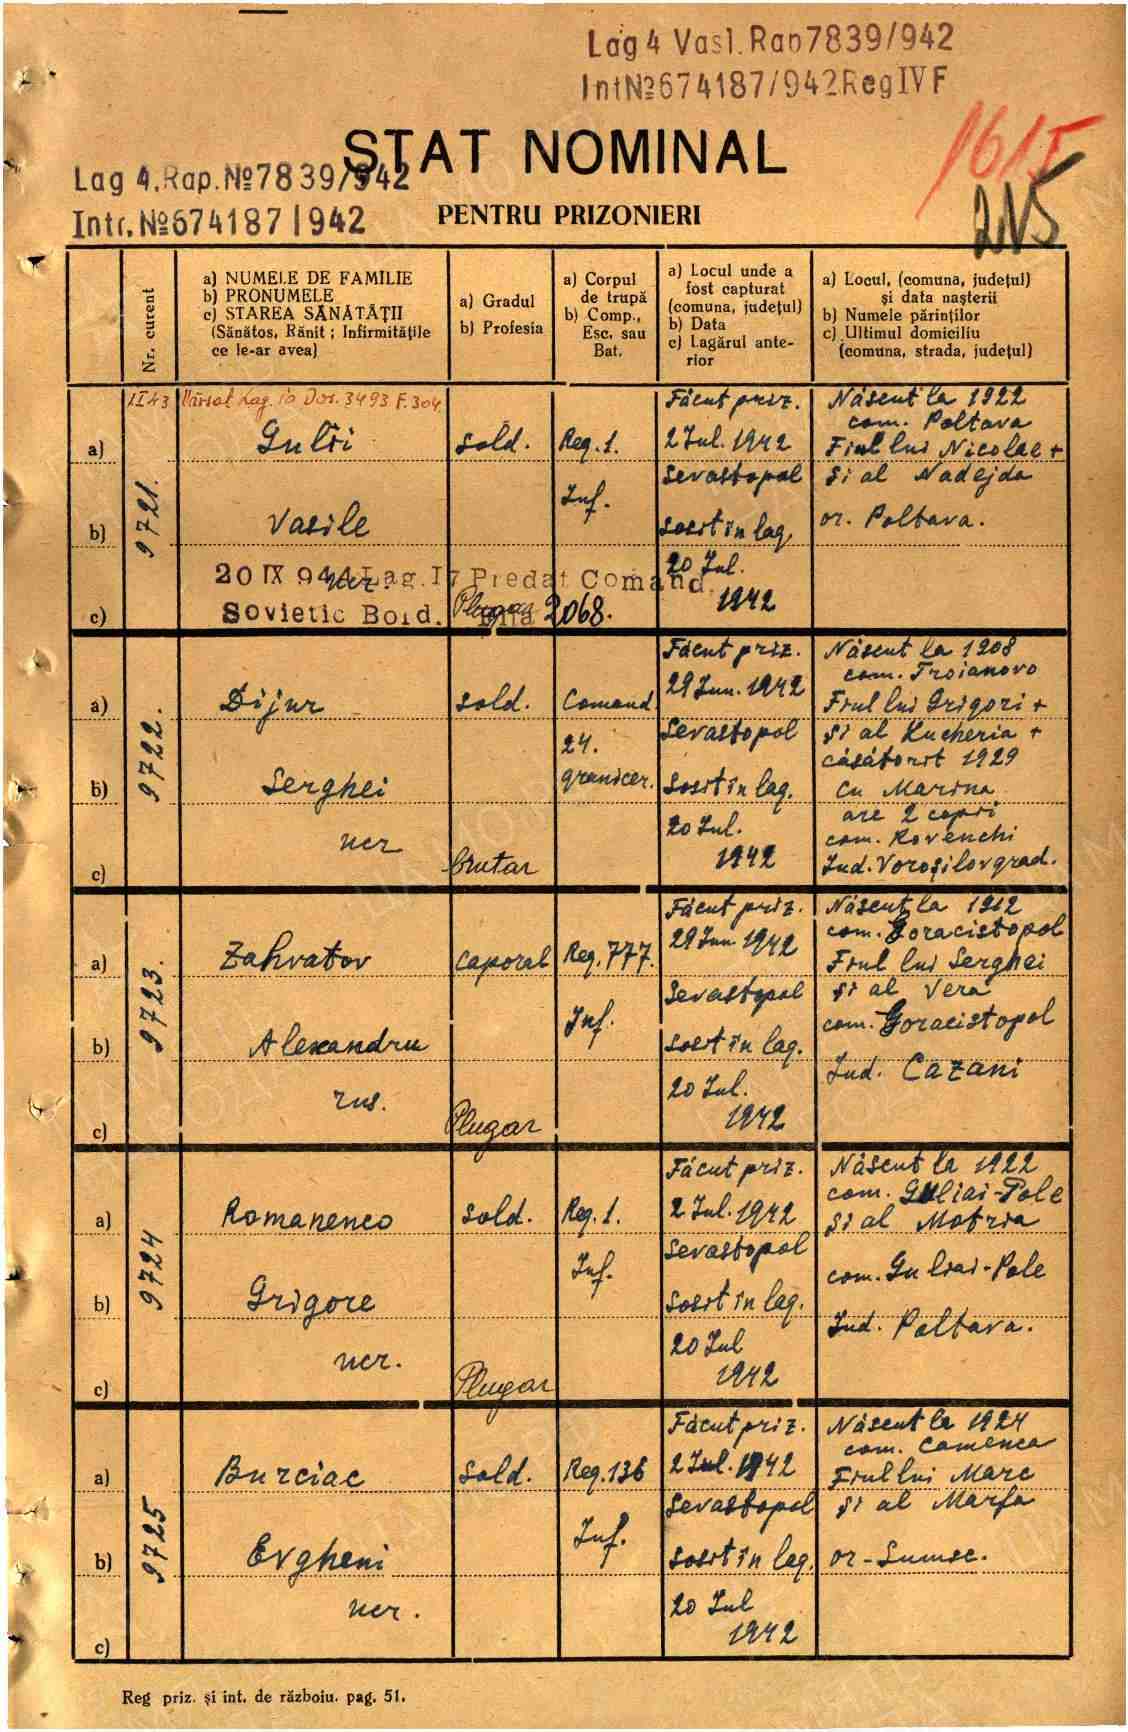 Lag 4 Vasl. Rap 7839/942
Int № 674187/942 Reg IV F
1615
215
STAT NOMINAL
Lag 4. Rap. № 7839/942
Intr. № 674187/942
PENTRU PRIZONIERI
Nr. curent
a) NUMELE DE FAMILIE
b) PRONUMELE
c) STAREA SĂNĂTĂŢII
(Sănătos, Rănit ; Infirmităţile
ce le-ar avea)
a) Gradul
b) Profesia
a) Corpul
de trupă
b) Comp.,
Esc. sau
Bat.
a) Locul unde a
fost capturat
(comuna, judeţul)
b) Data
c) Lagărul ante-
rior
a) Locul, (comuna, judeţul)
şi data naşterii
b) Numele părinţilor
c) Ultimul domiciliu
(comuna, strada, judeţul)
1 I 43 Vărsat Lag. 10 Dos. 3493 F. 304.
9721.
a)
b)
c)
Vasile
ucr.
20 IX 944 Lag. 17 Predat Comand.
Sovietic Bold. 2068.
sold.
Plugar
Reg. 1.
Inf.
Făcut priz.
2 Iul. 1942
Sevastopol
sosit în lag.
20 Iul.
1942
Născut la 1922
com. Poltava
Fiul lui Nicolae +
şi al Nadejda
or. Poltava.
9722.
a)
b)
c)
Dijur
Serghei
ucr
sold.
brutar
Comand.
24.
granicer.
Făcut priz.
29 Iun. 1942
Sevastopol
Sosit în lag.
20 Iul.
1942
Născut la 1908
com. Troianovo
Fiul lui Grigori +
şi al Lucheria +
căsătorit 1929
cu Marina
are 2 copii
com. Rovenchi
Jud. Voroşilovgrad.
9723.
a)
b)
c)
Zahvatov
Alexandru
rus.
caporal
Plugar
Reg. 777.
Inf.
Făcut priz.
29 Iun. 1942
Sevastopol
sosit în lag.
20 Iul.
1942
Născut la 1912
com. Goracistopol
Fiul lui Serghei
şi al Vera
com. Goracistopol
Jud. Cazani
9724
a)
b)
c)
Romanenco
Grigore
ucr.
sold.
Plugar
Reg. 1.
Inf.
Făcut priz.
2 Iul. 1942
Sevastopol
Sosit în lag.
20 Iul
1942
Născut la 1922
com. Guliai-Pole
şi al Motria
com. Guliai-Pole
Jud. Poltava.
9725
a)
b)
c)
Burciac
Evgheni
ucr.
sold.
Reg. 136
Inf.
Făcut priz.
2 Iul. 1942
Sevastopol
sosit în lag.
20 Iul
1942
Născut la 1924
com. Camenca
Fiul lui Marc
şi al Marfa
or - Sumsc.
Reg priz. şi int. de războiu. pag. 51.